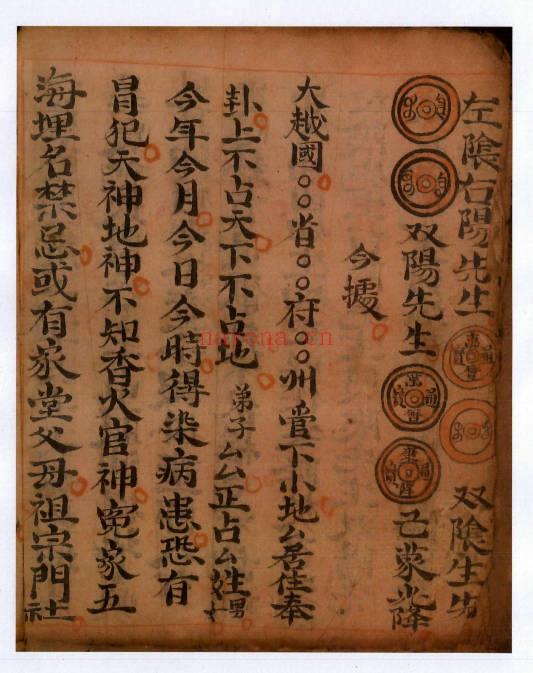 左陰右陽先生 双陰生先
双陽先生 己蒙光降
今據
大越國○○省○○府○○州管下小地厶居住奉
卦上不占天下不占地 弟子厶厶正占厶姓男女
今年今月今日今時得染病患恐有
冒犯天神地神不知香火官神冤家五
海埋名禁忌或有家堂父母祖宗門社
nayona.cn